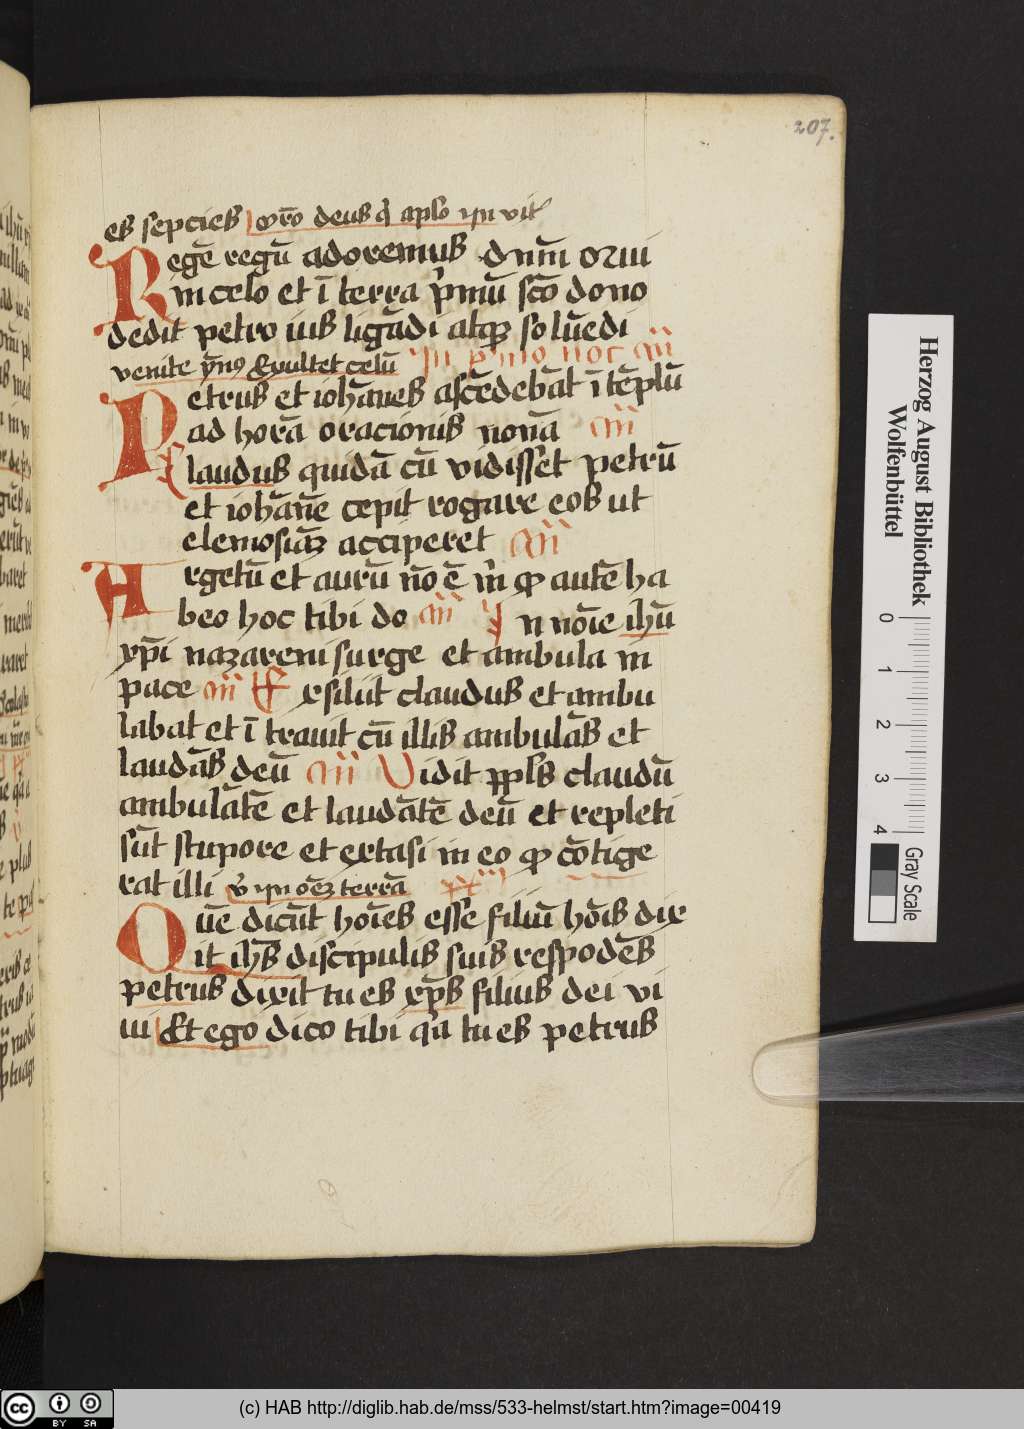 207.
es sepcies orō deus q̇ aplo yn vit
Regē regū adoremus dnm̄ ꝙui
in celo et ī terra p̄mū scō dono
dedit petro ius ligādi atqꝫ soluēdi
venite ym̄9 Exultet celū In p̄mo noc añ
Petrus et ioh̄anes ascēdebāt ī tēplū
ad horā oracionis nonā añ
Claudus quidā cū vidisset petrū
et ioh̄anē cepit rogare eos ut
elemosinā acciperet añ
Argētū et aurū nō ē m̄ ꝙ autē ha
beo hoc tibi do añ Yn noīe ih̄u
xp̄i nazareni surge et ambula in
pace añ Et exsiliit claudus et ambu
labat et ī trauit cū illis ambulās et
laudās deū añ Vidit ppl̄s claudū
ambulātē et laudātē deū et repleti
sūt stupore et extasi in eo ꝙ cōtige
rat illi v̄ yn oēꝫ terrā
Quē dicūt hoīes esse filiū hōis dix
it ih̄s discipulis suis respōdēs
petrus dixit tu es xp̄s filius dei vi
ui Et ego dico tibi qā tu es petrus
Herzog August Bibliothek
Wolfenbüttel
0 1 2 3 4
Gray Scale
cc BY SA
(c) HAB http://diglib.hab.de/mss/533-helmst/start.htm?image=00419